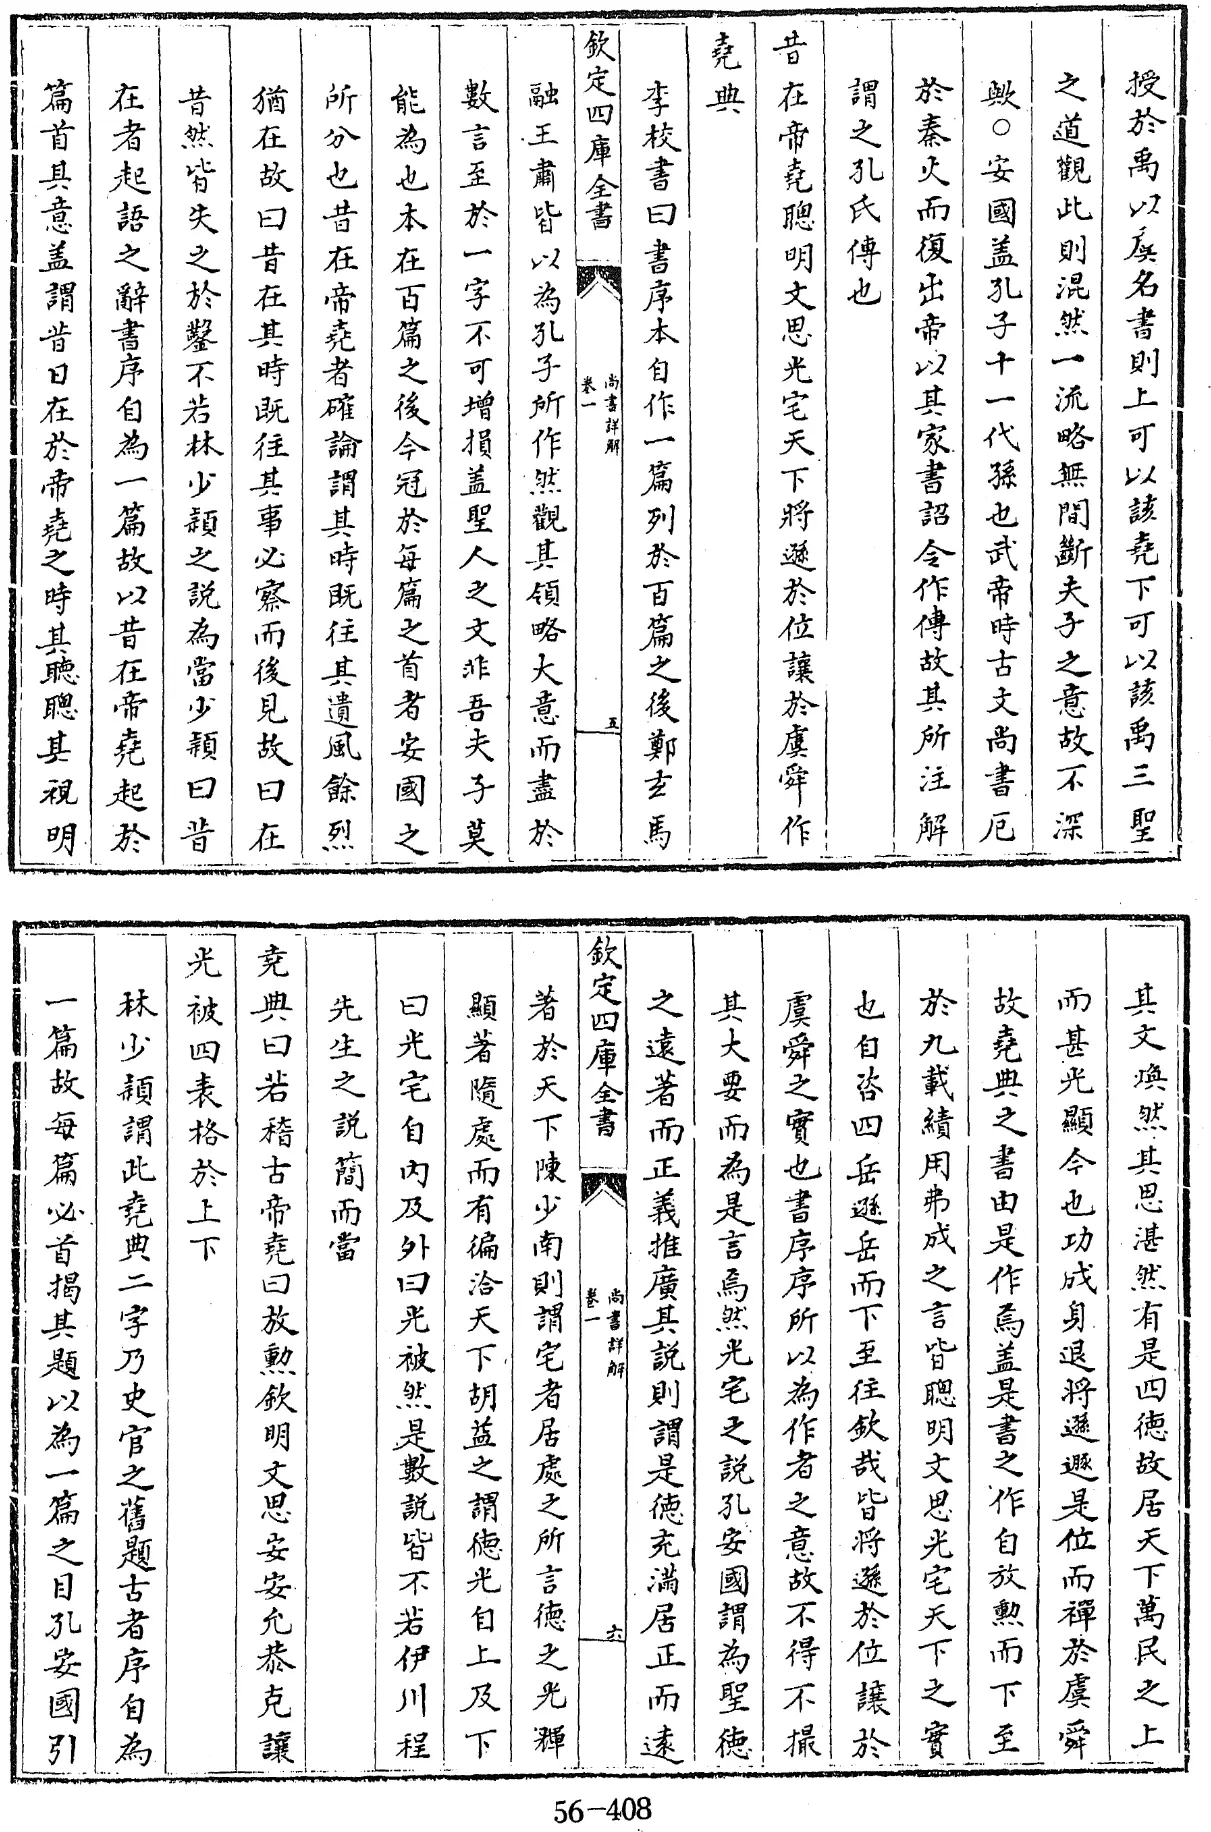 授於禹以虞名書則上可以該堯下可以該禹三聖
之道觀此則混然一流略無間斷夫子之意故不深
歟○安國盖孔子十一代孫也武帝時古文尚書厄
於秦火而復出帝以其家書詔令作傳故其所注解
謂之孔氏傳也
昔在帝堯聰明文思光宅天下將遜於位讓於虞舜作
堯典
李校書曰書序本自作一篇列於百篇之後鄭玄馬
欽定四庫全書
尚書詳解
卷一
五
融王肅皆以為孔子所作然觀其領略大意而盡於
數言至於一字不可增損盖聖人之文非吾夫子莫
能為也本在百篇之後今冠於每篇之首者安國之
所分也昔在帝堯者確論謂其時既往其遺風餘烈
猶在故曰昔在其時既往其事必察而後見故曰在
昔然皆失之於鑿不若林少穎之説為當少穎曰昔
在者起語之辭書序自為一篇故以昔在帝堯起於
篇首其意盖謂昔日在於帝堯之時其聽聰其視明
其文煥然其思湛然有是四徳故居天下萬民之上
而甚光顯今也功成身退將遜遯是位而禪於虞舜
故堯典之書由是作焉盖是書之作自放勲而下至
於九載績用弗成之言皆聰明文思光宅天下之實
也自咨四岳遜岳而下至往欽哉皆將遜於位讓於
虞舜之實也書序序所以為作者之意故不得不撮
其大要而為是言焉然光宅之説孔安國謂為聖徳
之遠著而正義推廣其説則謂是徳充滿居正而遠
欽定四庫全書
尚書詳解
卷一
六
著於天下陳少南則謂宅者居處之所言徳之光輝
顯著隨處而有徧洽天下胡益之謂徳光自上及下
曰光宅自内及外曰光被然是數説皆不若伊川程
先生之説簡而當
堯典曰若稽古帝堯曰放勲欽明文思安安允恭克讓
光被四表格於上下
林少穎謂此堯典二字乃史官之舊題古者序自為
一篇故每篇必首揭其題以為一篇之目孔安國引
56-408